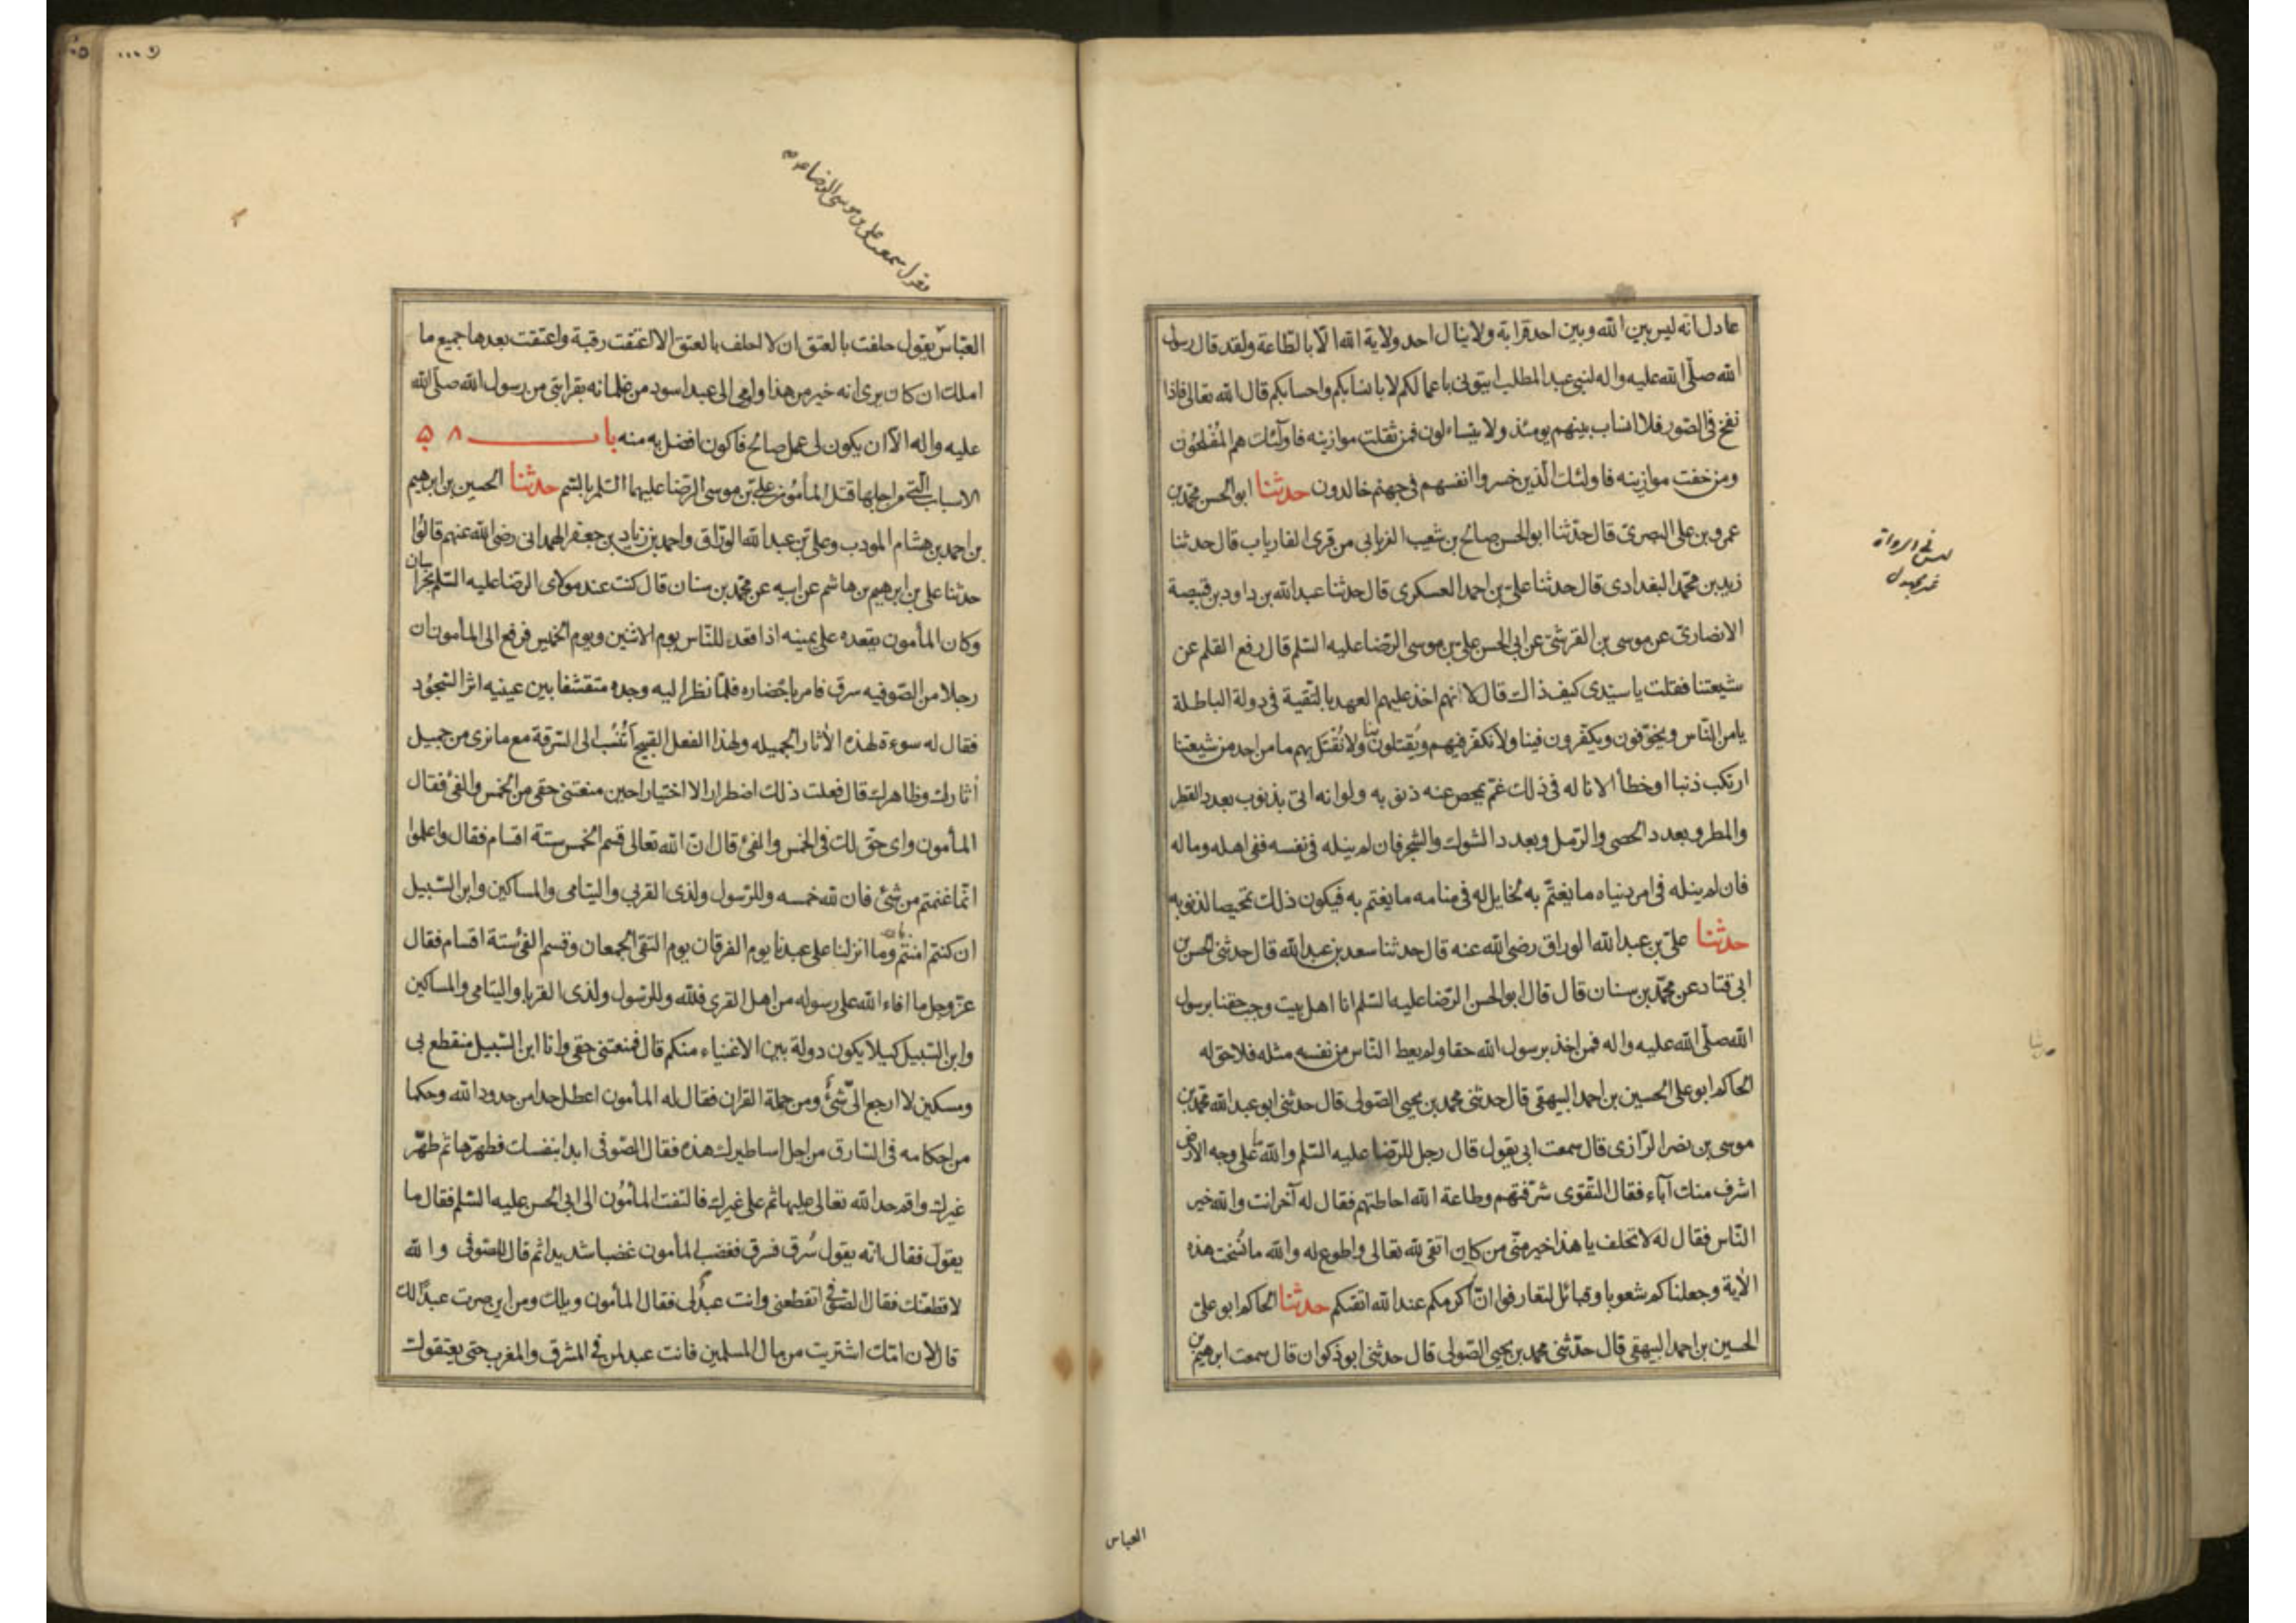 عادل انه ليس بين الله وبين احد قرابة ولا ينال احد ولاية الله الا بالطاعة ولقد قال رسول
الله صلى الله عليه واله لبنى عبد المطلب ايتونى باعمالكم لا بانسابكم واحسابكم قال الله تعالى فاذا
نفخ فى الصور فلا انساب بينهم يومئذ ولا يتساءلون فمن ثقلت موازينه فاولئك هم المفلحون
ومن خفت موازينه فاولئك الذين خسروا انفسهم فى جهنم خالدون حدثنا ابو الحسن محمد بن
عمرو بن على البصرى قال حدثنا ابو الحسن صالح بن شعيب الغريابى من قرى الفارياب قال حدثنا
زيد بن محمد البغدادى قال حدثنا على بن احمد العسكرى قال حدثنا عبد الله بن داود بن قبيصة
الانصارى عن موسى بن القرشى عن ابى الحسن على بن موسى الرضا عليه السلم قال رفع القلم عن
شيعتنا فقلت يا سيدى كيف ذاك قال لانهم اخذ عليهم العهد بالتقية فى دولة الباطلة
يامن الناس ويخوفون ويكفرون فينا ولا نكفر فيهم ويقتلون بنا ولا نقتل بهم ما من احد من شيعتنا
ارتكب ذنبا او خطأ الا ناله فى ذلك غم يمحص عنه ذنوبه ولو انه اتى بذنوب بعدد القطر
والمطر وبعدد الحصى والرمل وبعدد الشوك والشجر فان لم ينله فى نفسه ففى اهله وماله
فان لم ينله فى امر دنياه ما يغتم به تخايل له فى منامه ما يغتم به فيكون ذلك تمحيصا لذنوبه
حدثنا على بن عبد الله الوراق رضى الله عنه قال حدثنا سعد بن عبد الله قال حدثنى الحسن بن
ابى قتاد عن محمد بن سنان قال قال ابو الحسن الرضا عليه السلم انا اهل بيت وجب حقنا برسول
الله صلى الله عليه واله فمن اخذ برسول الله حقا ولم يعط الناس من نفسه مثله فلا حق له
الحاكم ابو على الحسين بن احمد البيهقى قال حدثنى محمد بن يحيى الصولى قال حدثنى ابو عبد الله محمد بن
موسى بن نصر الرازى قال سمعت ابى يقول قال رجل للرضا عليه السلم والله ما على وجه الارض
اشرف منك آباء فقال التقوى شرفتهم وطاعة الله احاطتهم فقال له آخر انت والله خير
الناس فقال له لا تحلف يا هذا خير منى من كان اتقى لله تعالى واطوع له والله ما نسخت هذه
الآية وجعلناكم شعوبا وقبائل لتعارفوا ان اكرمكم عند الله اتقيكم حدثنا الحاكم ابو على
الحسين بن احمد البيهقى قال حدثنى محمد بن يحيى الصولى قال حدثنى ابو ذكوان قال سمعت ابرهيم بن
ليس فى الرواة
العباس
يقول سمعت على بن موسى الرضا
العباس يقول حلفت بالعتق ان لا احلف بالعتق الا اعتقت رقبة واعتقت بعدها جميع ما
املك ان كان يرى انه خير من هذا واومى الى عبد اسود من غلمانه بقرابتى من رسول الله صلى الله
عليه واله الا ان يكون لى عمل صالح فاكون افضل به منه باب ٥٨
الاسباب التى من اجلها قتل المأمون على بن موسى الرضا عليهما السلم بالسم حدثنا الحسين بن ابرهيم
بن احمد بن هشام المودب وعلى بن عبد الله الوراق واحمد بن زياد بن جعفر الهمدانى رضى الله عنهم قالوا
حدثنا على بن ابرهيم بن هاشم عن ابيه عن محمد بن سنان قال كنت عند مولاى الرضا عليه السلم بخراسان
وكان المأمون يقعده على يمينه اذا قعد للناس يوم الاثنين ويوم الخميس فرفع الى المأمون ان
رجلا من الصوفيه سرق فامر باحضاره فلما نظر اليه وجده متقشفا بين عينيه اثر السجود
فقال له سوءة لهذه الأثار الجميله ولهذا الفعل القبيح أتنسب الى السرقة مع ما نرى من جميل
أثارك وظاهرك قال فعلت ذلك اضطرارا لا اختيارا حين منعتنى حقى من الخمس والفئ فقال
المأمون واى حق لك فى الخمس والفئ قال ان الله تعالى قسم الخمس ستة اقسام فقال واعلموا
انما غنمتم من شئ فان لله خمسه وللرسول ولذى القربى واليتامى والمساكين وابن السبيل
ان كنتم امنتم بالله وما انزلنا على عبدنا يوم الفرقان يوم التقى الجمعان وقسم الفئ ستة اقسام فقال
عز وجل ما افاء الله على رسوله من اهل القرى فلله وللرسول ولذى القربا واليتامى والمساكين
وابن السبيل كيلا يكون دولة بين الاغنياء منكم قال فمنعتنى حقى وانا ابن السبيل منقطع بى
ومسكين لا ارجع الى شئ ومن حملة القران فقال له المأمون اعطل حدا من حدود الله وحكما
من احكامه فى السارق من اجل اساطيرك هذه فقال الصوفى ابدا بنفسك فطهرها ثم طهر
غيرك واقم حد الله تعالى عليها ثم على غيرك فالتفت المأمون الى ابى الحسن عليه السلم فقال ما
يقول فقال انه يقول سرق فسرق فغضب المأمون غضبا شديدا ثم قال للصوفى والله
لاقطعنك فقال الصوفى اتقطعنى وانت عبد لى فقال المأمون ويلك ومن اين صرت عبدا لك
قال لان امك اشتريت من مال المسلمين فانت عبد لمن فى المشرق والمغرب حتى يعتقوك